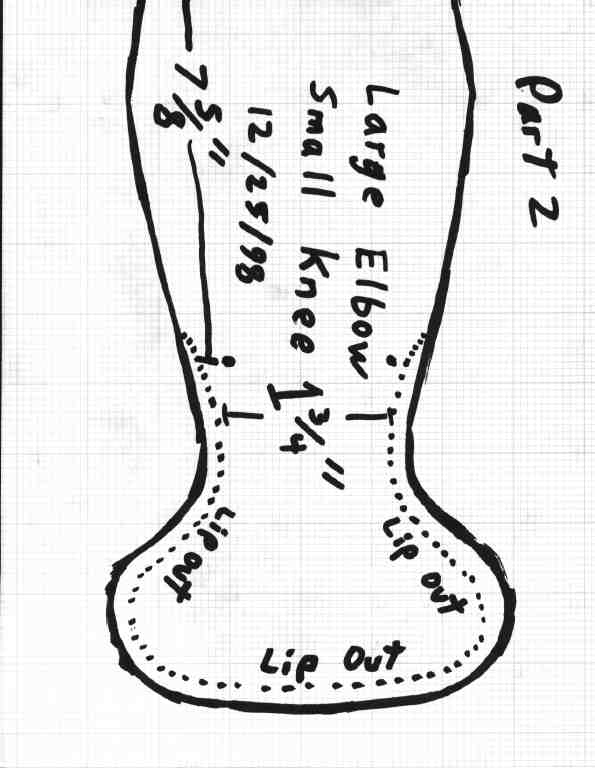 Part 2
Large Elbow
Small Knee
12/25/98
7 5/8"
1 3/4"
Lip out
Lip out
Lip Out